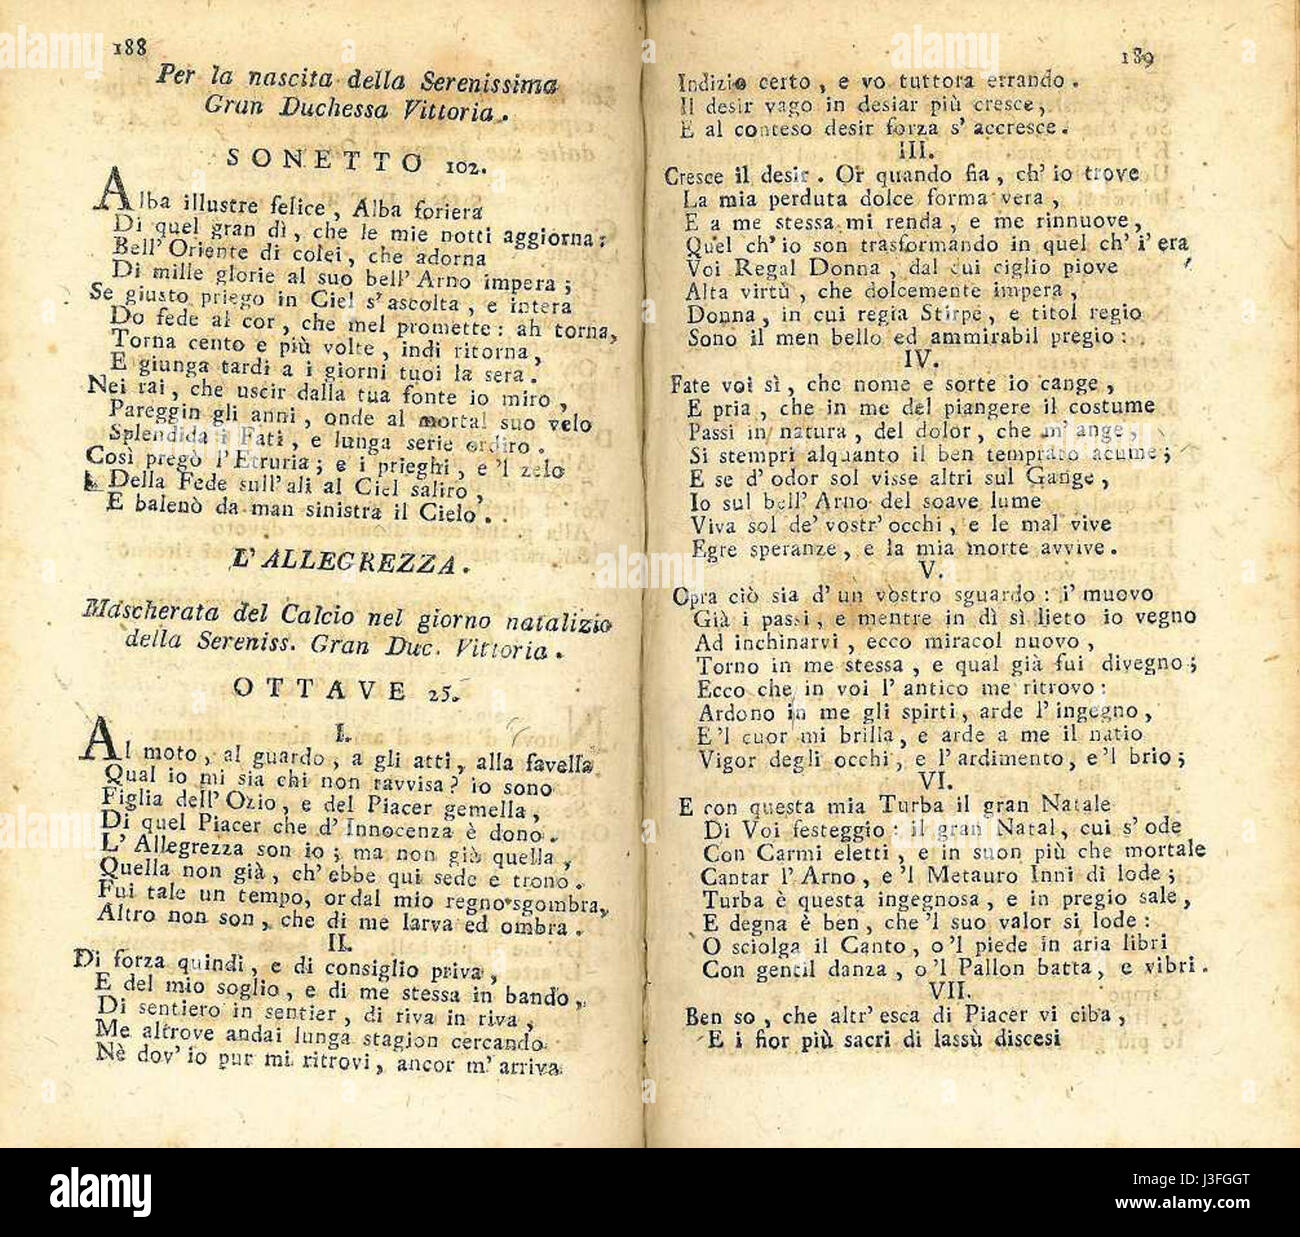 188
Per la nascita della Serenissima
Gran Duchessa Vittoria.
SONETTO 102.
Alba illustre felice, Alba foriera
Di quel gran dì, che le mie notti aggiorna;
Bell' Oriente di colei, che adorna
Di mille glorie al suo bell' Arno impera;
Se giusto priego in Ciel s'ascolta, e intera
Do fede al cor, che mel promette: ah torna,
Torna cento e più volte, indi ritorna,
E giunga tardi a i giorni tuoi la sera.
Nei rai, che uscir dalla tua fonte io miro,
Pareggin gli anni, onde al mortal suo velo
Splendida i Fati, e lunga serie ordiro.
Così pregò l'Etruria; e i prieghi, e 'l zelo
Della Fede sull' ali al Ciel saliro,
E balenò da man sinistra il Cielo.
L' ALLEGREZZA.
Mascherata del Calcio nel giorno natalizio
della Sereniss. Gran Duc. Vittoria.
OTTAVE 25.
I.
Al moto, al guardo, a gli atti, alla favella
Qual io mi sia chi non ravvisa? io sono
Figlia dell' Ozio, e del Piacer gemella,
Di quel Piacer che d' Innocenza è dono.
L' Allegrezza son io; ma non già quella,
Quella non già, ch' ebbe qui sede e trono.
Fui tale un tempo, or dal mio regno sgombra,
Altro non son, che di me larva ed ombra.
II.
Di forza quindi, e di consiglio priva,
E del mio soglio, e di me stessa in bando,
Di sentiero in sentier, di riva in riva,
Me altrove andai lunga stagion cercando
Nè dov' io pur mi ritrovi, ancor m' arriva
189
Indizio certo, e vo tuttora errando.
Il desir vago in desiar più cresce,
E al conteso desir forza s' accresce.
III.
Cresce il desir. Or quando fia, ch' io trove
La mia perduta dolce forma vera,
E a me stessa mi renda, e me rinnuove,
Quel ch' io son trasformando in quel ch' i' era
Voi Regal Donna, dal cui ciglio piove
Alta virtù, che dolcemente impera,
Donna, in cui regia Stirpe, e titol regio
Sono il men bello ed ammirabil pregio:
IV.
Fate voi sì, che nome e sorte io cange,
E pria, che in me del piangere il costume
Passi in natura, del dolor, che m' ange,
Si stempri alquanto il ben temprato acume;
E se d' odor sol visse altri sul Gange,
Io sul bell' Arno del soave lume
Viva sol de' vostr' occhi, e le mal vive
Egre speranze, e la mia morte avvive.
V.
Opra ciò sia d' un vostro sguardo: i' muovo
Già i passi, e mentre in dì sì lieto io vegno
Ad inchinarvi, ecco miracol nuovo,
Torno in me stessa, e qual già fui divegno;
Ecco che in voi l' antico me ritrovo:
Ardono in me gli spirti, arde l' ingegno,
E 'l cuor mi brilla, e arde a me il natio
Vigor degli occhi, e l' ardimento, e 'l brio;
VI.
E con questa mia Turba il gran Natale
Di Voi festeggio: il gran Natal, cui s' ode
Con Carmi eletti, e in suon più che mortale
Cantar l' Arno, e 'l Metauro Inni di lode;
Turba è questa ingegnosa, e in pregio sale,
E degna è ben, che 'l suo valor si lode:
O sciolga il Canto, o 'l piede in aria libri
Con gentil danza, o 'l Pallon batta, e vibri.
VII.
Ben so, che altr' esca di Piacer vi ciba,
E i fior più sacri di lassù discesi
alamy
Image ID: J3FGGT
www.alamy.com